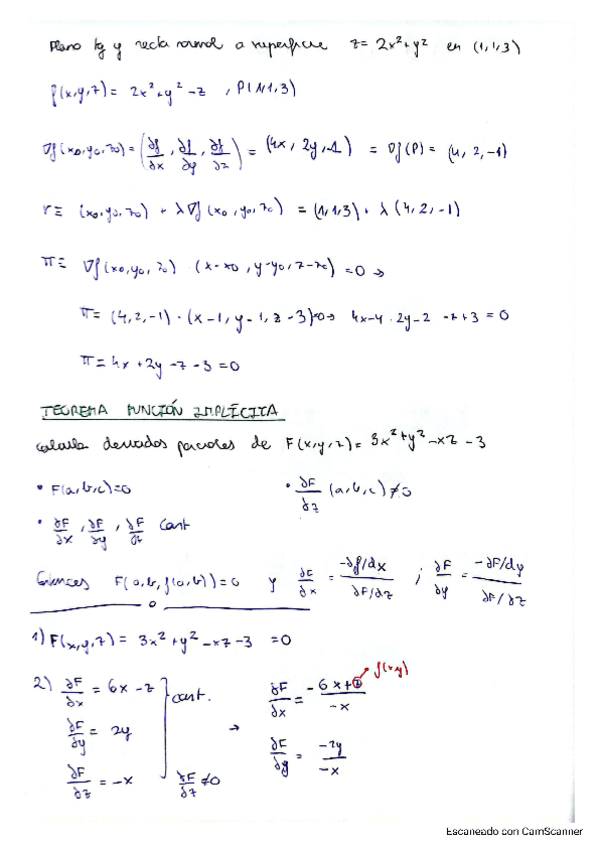 Plano tg y recta normal a superficie z = 2x²+y² en (1,1,3)
f(x,y,z) = 2x²+y²-z , P(1,1,3)
∇f(x₀,y₀,z₀) = (∂f/∂x , ∂f/∂y , ∂f/∂z) = (4x, 2y, -1) = ∇f(P) = (4, 2, -1)
r ≡ (x₀,y₀,z₀) + λ∇f(x₀,y₀,z₀) = (1,1,3) + λ(4,2,-1)
π ≡ ∇f(x₀,y₀,z₀) · (x-x₀, y-y₀, z-z₀) = 0 →
π = (4,2,-1) · (x-1, y-1, z-3) = 0 → 4x-4 + 2y-2 -z+3 = 0
π = 4x + 2y - z - 3 = 0
TEOREMA FUNCIÓN IMPLÍCITA
Calcula derivadas parciales de F(x,y,z) = 3x²+y²-xz-3
• F(a,b,c)=0 • ∂F/∂z (a,b,c) ≠ 0
• ∂F/∂x , ∂F/∂y , ∂F/∂z Cont
Entonces F(a,b,f(a,b)) = 0 y ∂F/∂x = -∂f/dx / ∂F/∂z ; ∂F/∂y = -∂F/dy / ∂F/∂z
1) F(x,y,z) = 3x²+y²-xz-3 = 0
2) ∂F/∂x = 6x - z cont. ∂F/∂x = -6x+z / -x f(x,y)
∂F/∂y = 2y →
∂F/∂z = -x ∂F/∂z ≠ 0 ∂F/∂y = -2y / -x
Escaneado con CamScanner